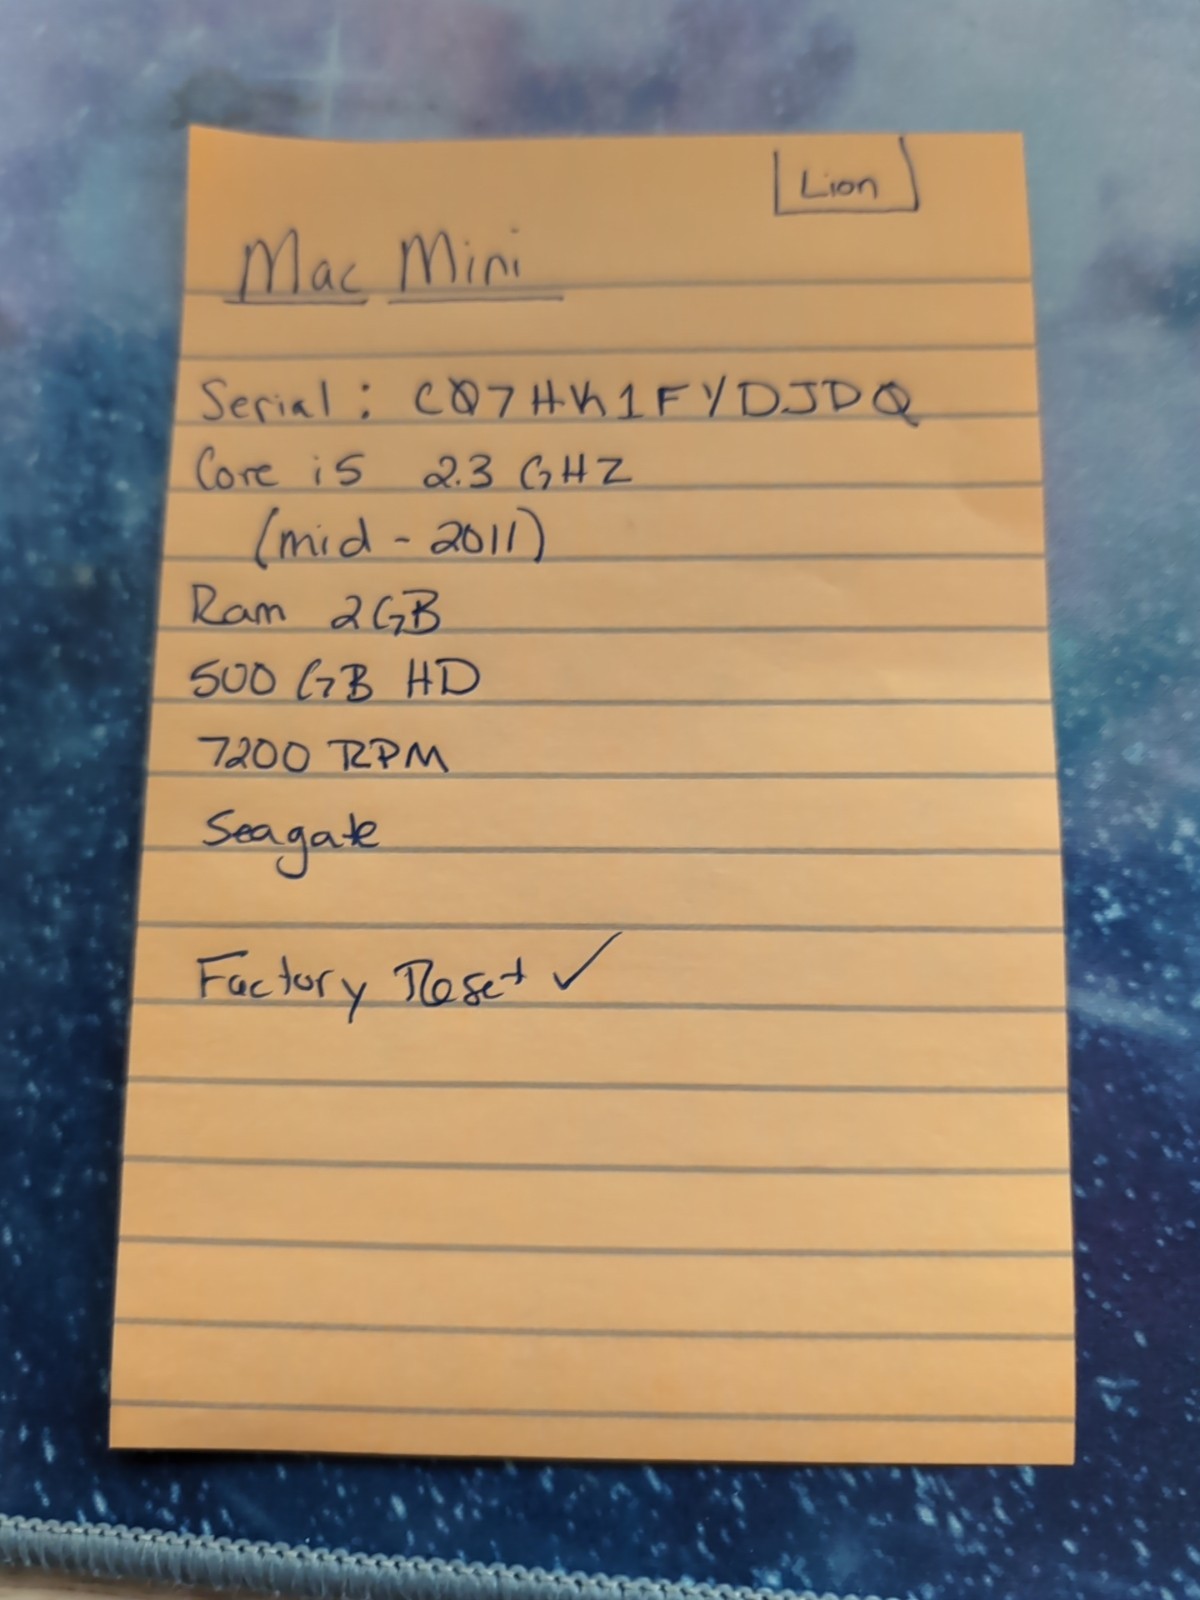 Lion
Mac Mini
Serial: C07HK1FYDJD0
Core i5 2.3 GHZ
(mid - 2011)
Ram 2GB
500 GB HD
7200 RPM
Seagate
Factory Reset ✓